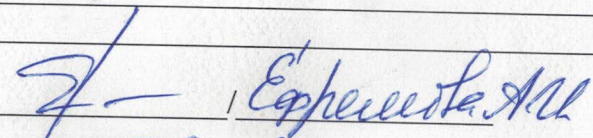 / Ефремова А.И.